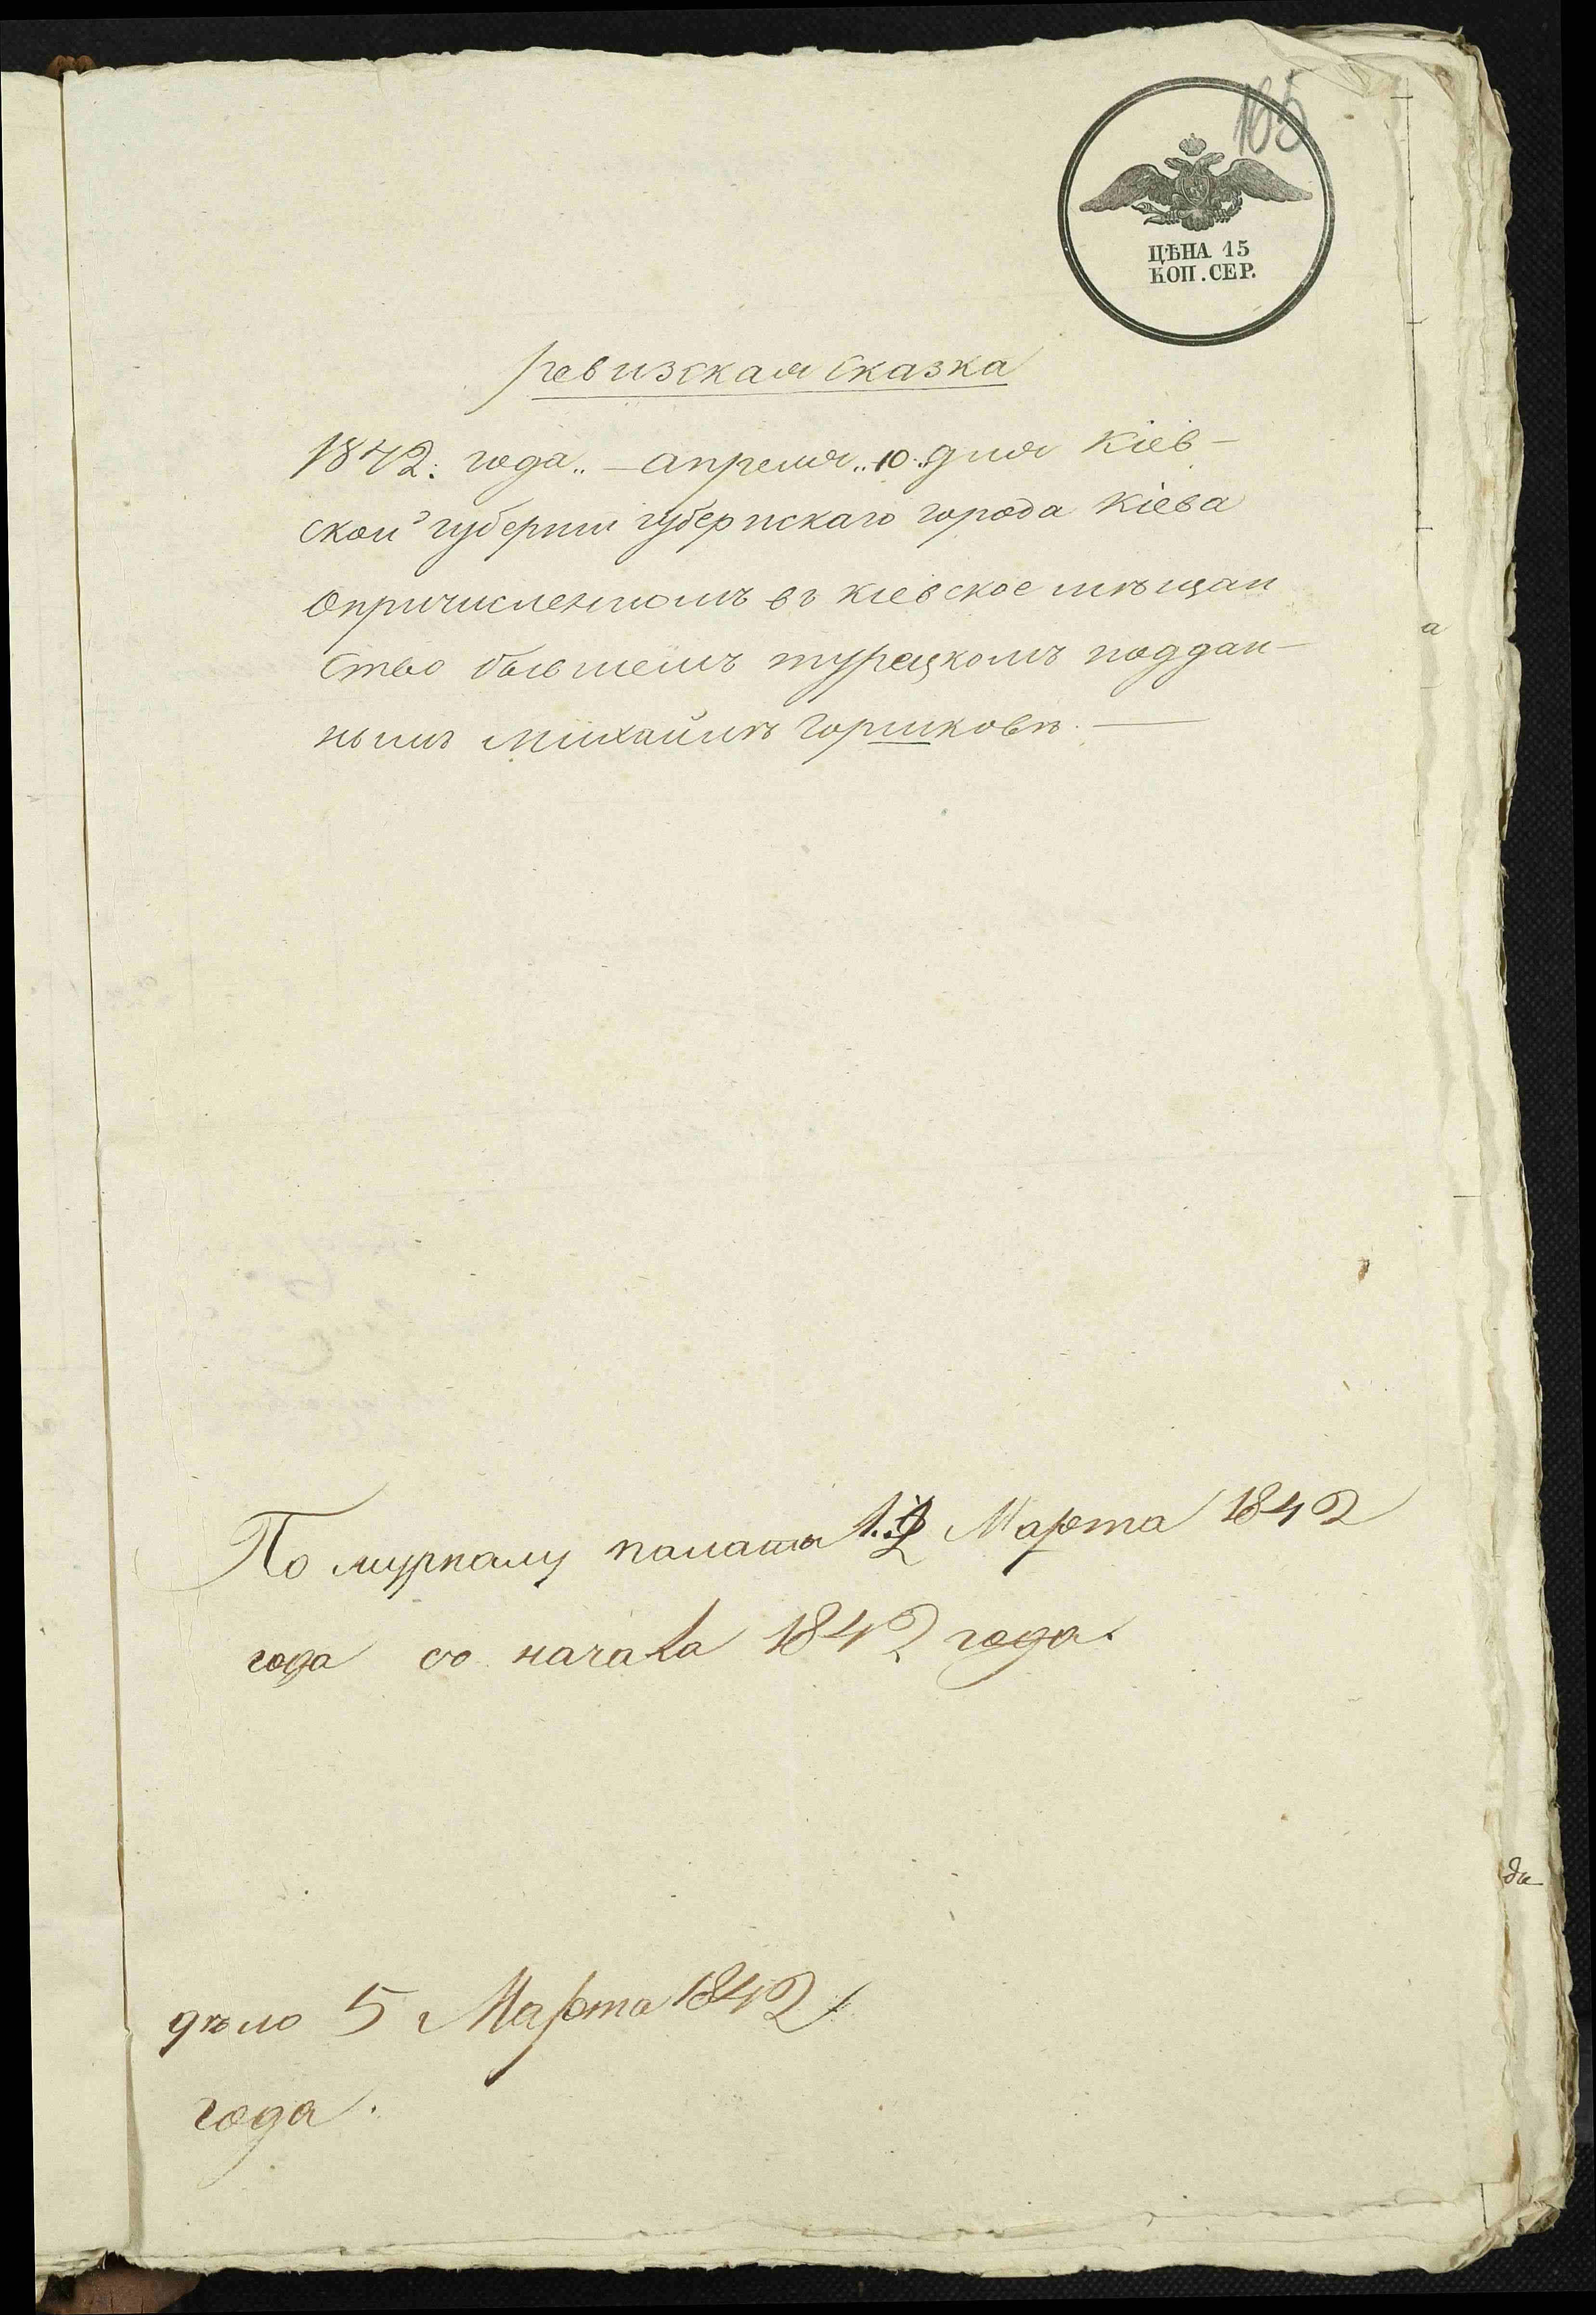 105
ЦѢНА 15
КОП. СЕР.
Ревизская сказка
1842. года.. — апреля..10..дня Кіев-
ской губерніи губернскаго города Кіева
о причисленномъ въ кіевское мѣщан
ство бывшемъ турецкомъ поддан-
нымъ Михайлѣ Горшковѣ. —
По журналу палаты Марта 1842
года со начала 1842 года.
дѣло 5 Марта 1842
года.
а
да